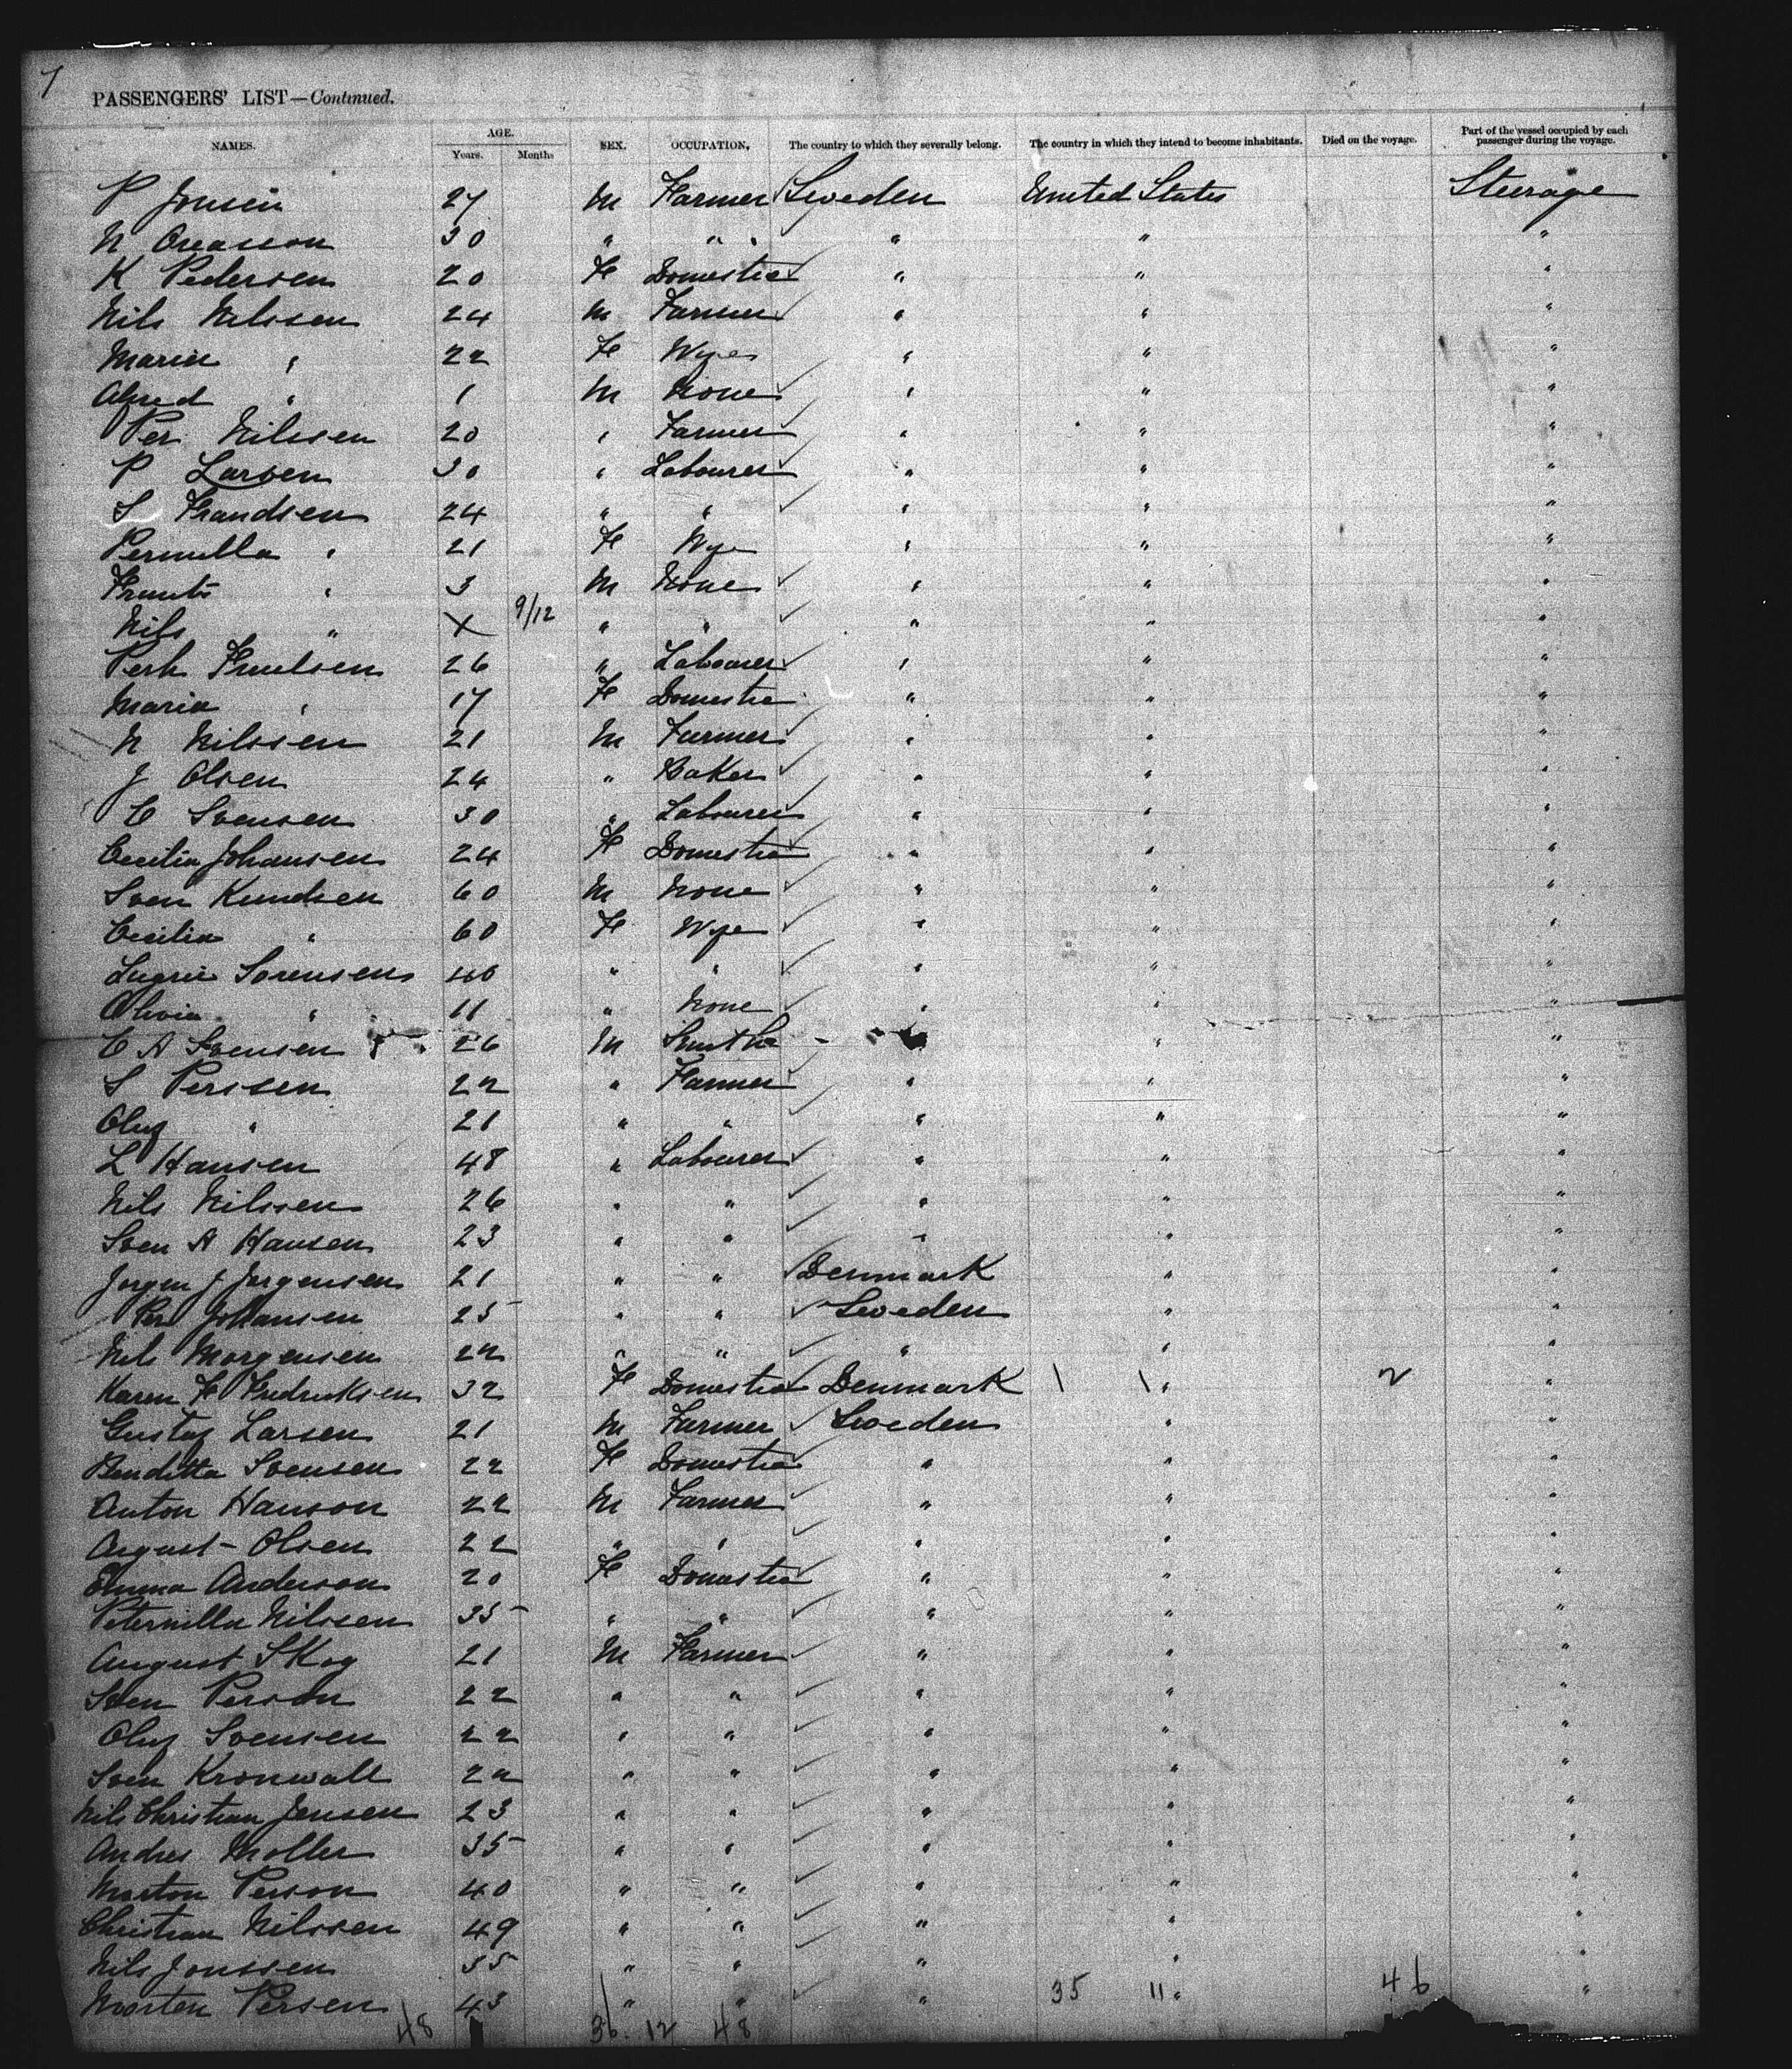 7
PASSENGERS' LIST—Continued.
NAMES. AGE. Years. Months SEX. OCCUPATION, The country to which they severally belong. The country in which they intend to become inhabitants. Died on the voyage. Part of the vessel occupied by each passenger during the voyage.
P Jonsen 27 M Farmer Sweden United States Steerage
N 30 " " " " "
K Pedersen 20 F Domestic " " "
Nils Nilssen 24 M Farmer " " "
Maria " 22 F Wife " " "
Alfred " 1 M None " " "
Per Nilssen 20 " Farmer " " "
P Larsen 30 " Labourer " " "
S Frandsen 24 " " " " "
Pernilla " 21 F Wife " " "
" 3 M None " " "
Nils " X 9/12 " " " " "
26 " Labourer " " "
Maria " 17 F Domestic " " "
N Nilssen 21 M Farmer " " "
J Olsen 24 " Baker " " "
C Svensen 30 " Labourer " " "
Cecilia Johansen 24 F Domestic " " "
Sven Kundsen 60 M None " " "
Cecilia " 60 F Wife " " "
Sorensen 40 " " " " "
Olivia " 11 " None " " "
C A Svensen 26 M Smith " " "
S Perssen 22 " Farmer " " "
Oluf " 21 " " " " "
L Hansen 48 " Labourer " " "
Nils Nilssen 26 " " " " "
Sven A Hansen 23 " " " " "
Jorgen J Jorgensen 21 " " Denmark " "
Per Johansen 25 " " Sweden " "
Nils Morgensen 22 " " " " "
Karen F Fredricksen 32 F Domestic Denmark 1 1 " 2 "
Gustaf Larsen 21 M Farmer Sweden " "
Benditta Svensen 22 F Domestic " " "
Anton Hanson 22 M Farmer " " "
August Olsen 22 " " " " "
Emma Anderson 20 F Domestic " " "
Peternilla Nilssen 35 " " " " "
August Skog 21 M Farmer " " "
Sven Person 22 " " " " "
Oluf Svensen 22 " " " " "
Sven Kronwall 22 " " " " "
Nils Christian Jensen 23 " " " " "
Andres Moller 35 " " " " "
Morton Person 40 " " " " "
Christian Nilssen 49 " " " " "
Nils Jonssen 35 " " " " "
Morten Persen 43 " " " 35 11 " 46 "
48 36 12 48